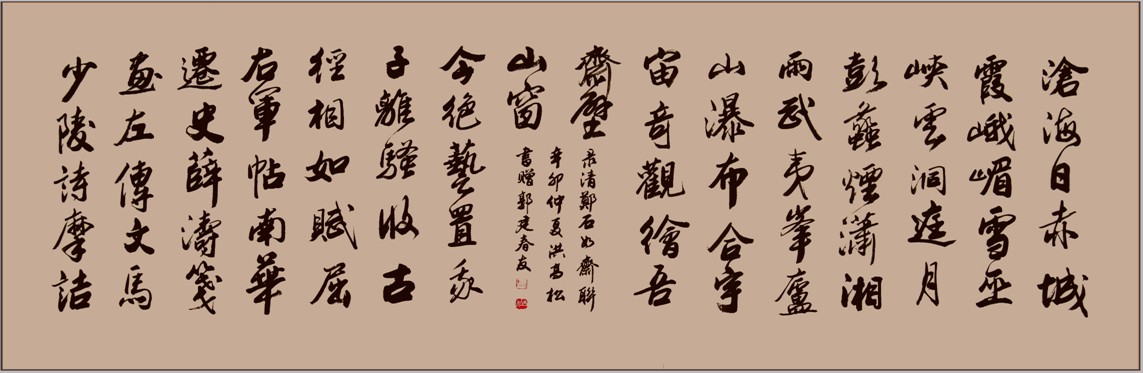 滄海日赤城
霞峨嵋雪巫
峽雲洞庭月
彭蠡煙瀟湘
雨武夷峯廬
山瀑布合宇
宙奇觀繪吾
齋壁
少陵詩摩詰
畫左傳文馬
遷史薛濤箋
右軍帖南華
經相如賦屈
子離騷收古
今绝藝置我
山窗
录清鄭石如齋聯
辛卯仲夏洪高松
書赠郭建春友